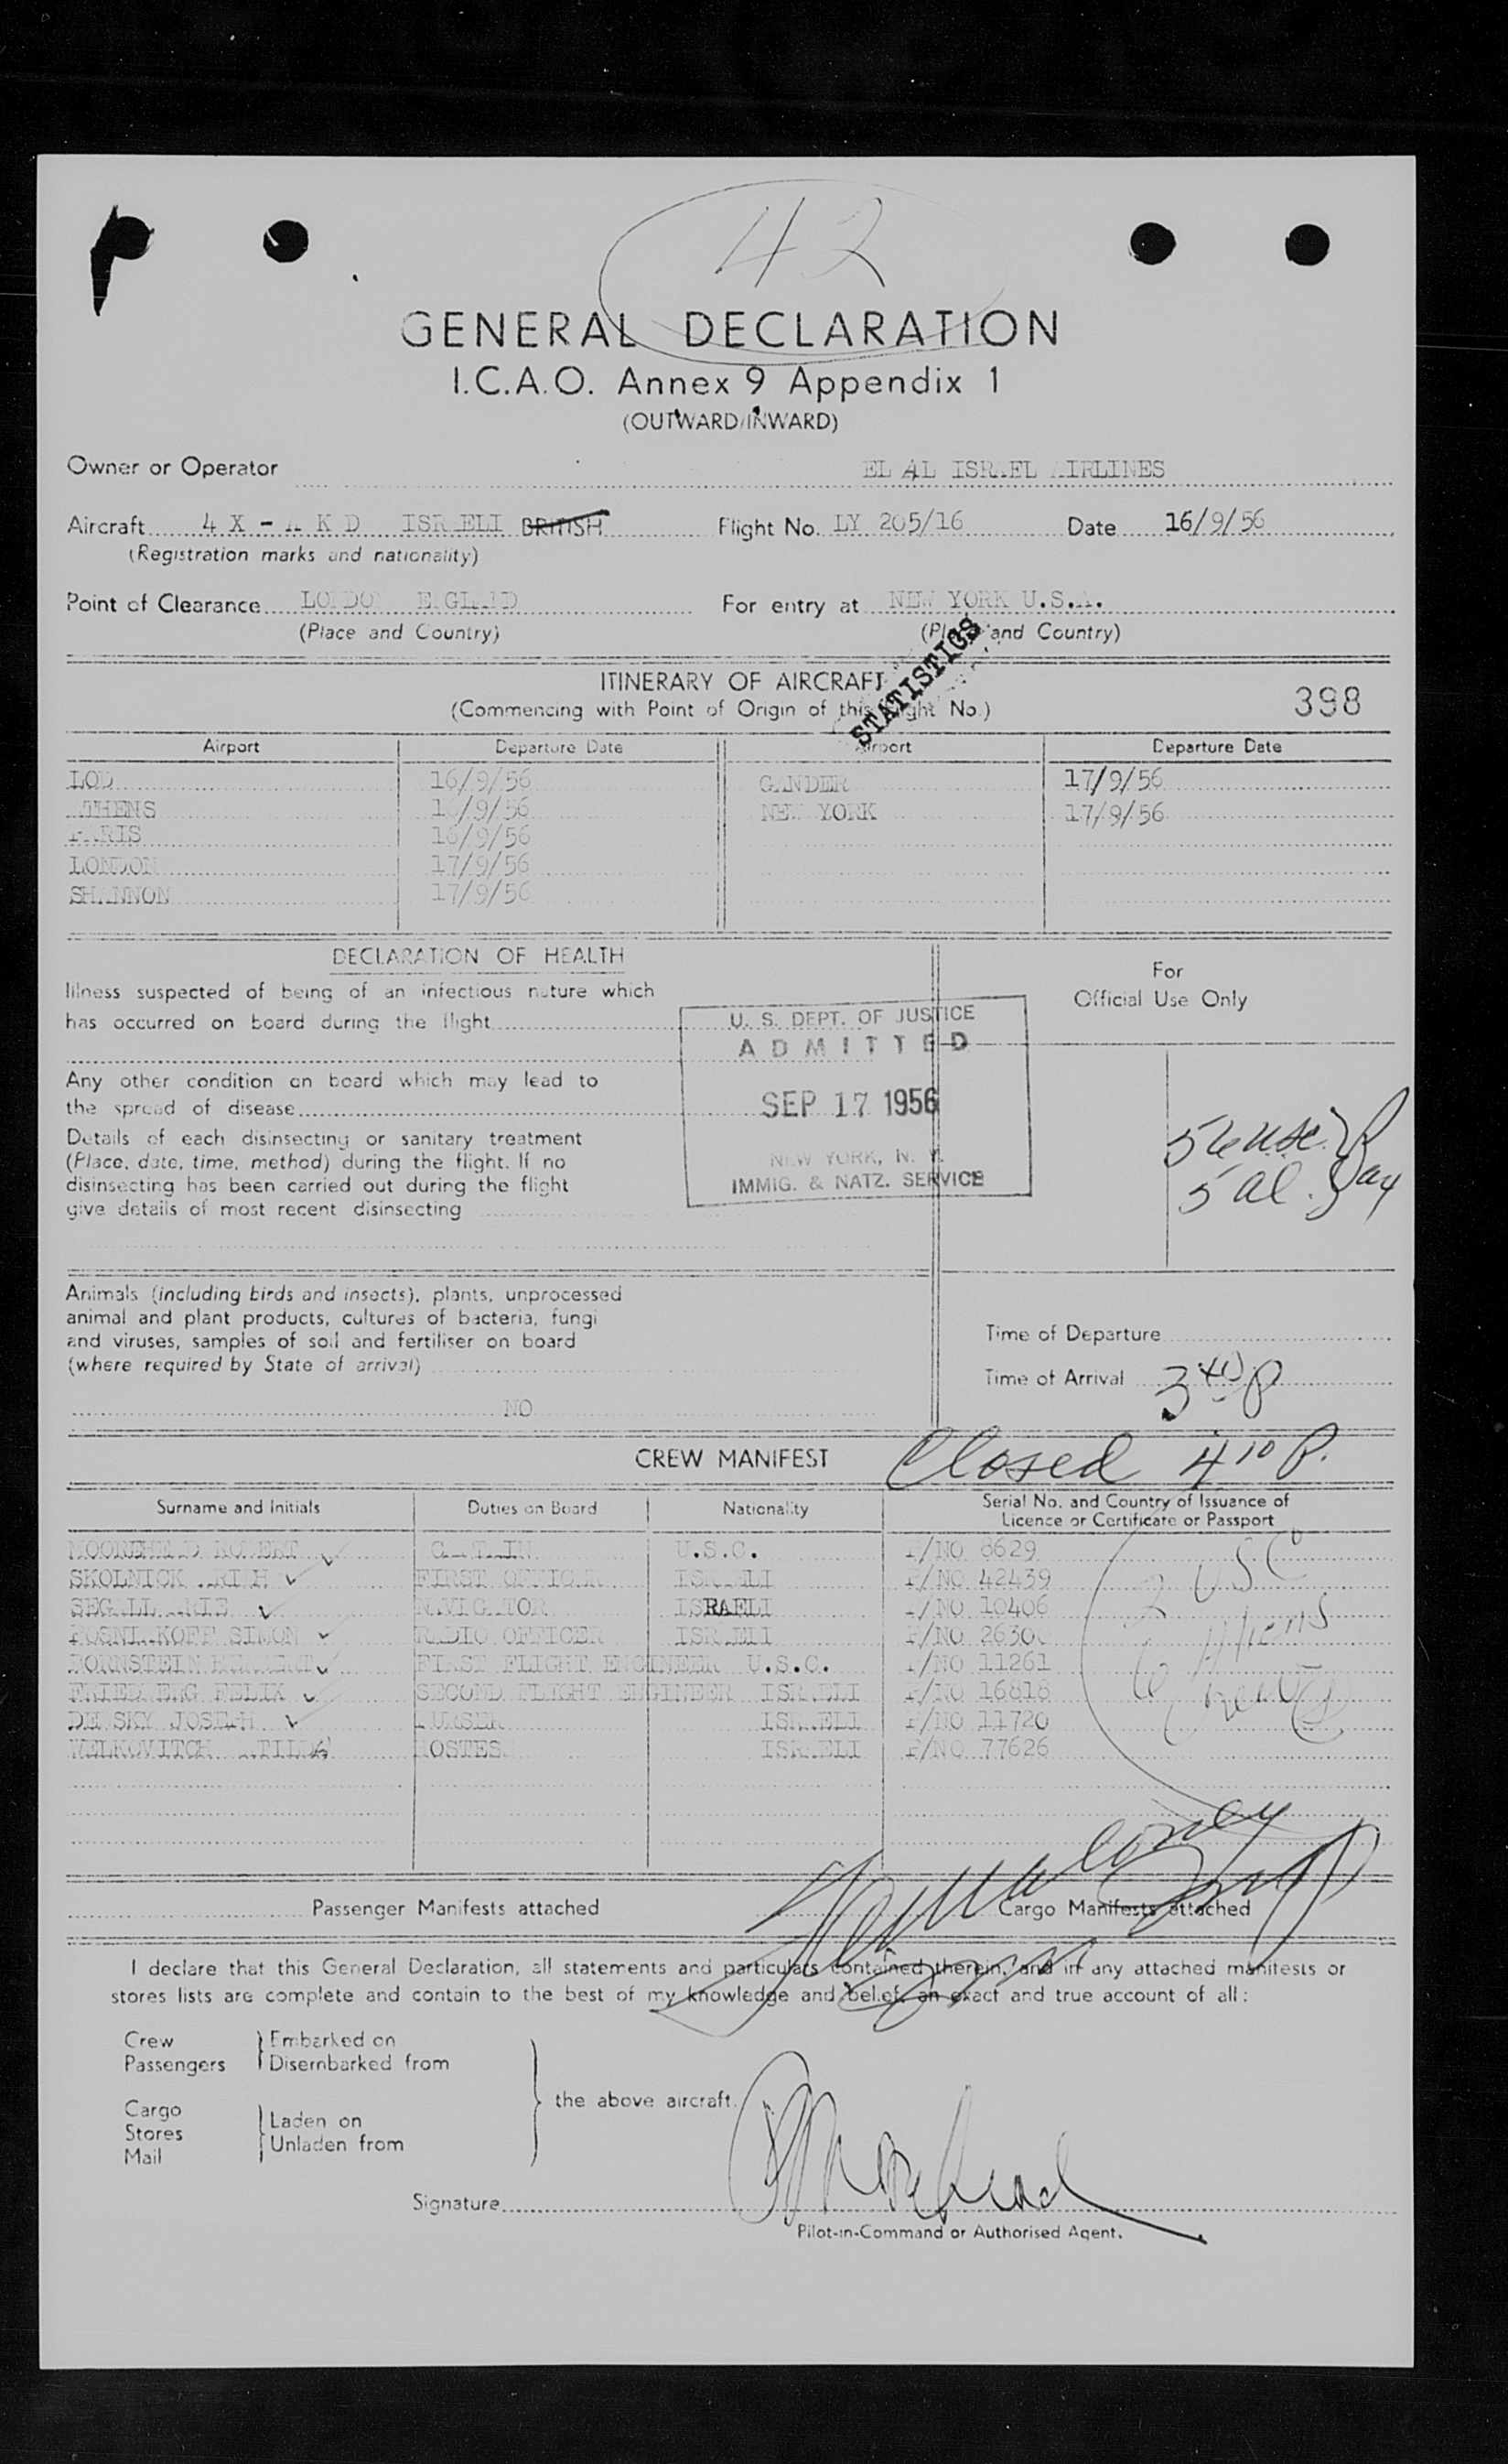 42
GENERAL DECLARATION
I.C.A.O. Annex 9 Appendix 1
(OUTWARD/INWARD)
Owner or Operator EL AL ISRAEL AIRLINES
Aircraft 4 X - A K D ISRAELI BRITISH Flight No. LY 205/16 Date 16/9/56
(Registration marks and nationality)
Point of Clearance LONDON ENGLAND For entry at NEW YORK U.S.A.
(Place and Country) (Place and Country)
STATISTICS
ITINERARY OF AIRCRAFT
(Commencing with Point of Origin of this Flight No.) 398
Airport Departure Date Airport Departure Date
LOD 16/9/56 GANDER 17/9/56
ATHENS 16/9/56 NEW YORK 17/9/56
PARIS 16/9/56
LONDON 17/9/56
SHANNON 17/9/56
DECLARATION OF HEALTH
For
Official Use Only
Illness suspected of being of an infectious nature which
has occurred on board during the flight
U. S. DEPT. OF JUSTICE
ADMITTED
SEP 17 1956
NEW YORK, N. Y.
IMMIG. & NATZ. SERVICE
Any other condition on board which may lead to
the spread of disease
Details of each disinsecting or sanitary treatment
(Place, date, time, method) during the flight. If no
disinsecting has been carried out during the flight
give details of most recent disinsecting
5 al.
Animals (including birds and insects), plants, unprocessed
animal and plant products, cultures of bacteria, fungi
and viruses, samples of soil and fertiliser on board
(where required by State of arrival)
NO
Time of Departure
Time of Arrival 3 40 P
CREW MANIFEST Closed 4 10 P.
Surname and Initials Duties on Board Nationality Serial No. and Country of Issuance of
Licence or Certificate or Passport
CAPTAIN U.S.C. P/NO 8629
SKOLNICK ARIEH FIRST OFFICER ISRAELI P/NO 42439
SEGALL ARIE NAVIGATOR ISRAELI P/NO 10406
POSNIAKOFF SIMON RADIO OFFICER ISRAELI P/NO
BORNSTEIN FIRST FLIGHT ENGINEER U.S.C. P/NO 11261
FELIX SECOND FLIGHT ENGINEER ISRAELI P/NO 16818
JOSEPH PURSER ISRAELI P/NO 11720
HOSTESS ISRAELI P/NO 77626
2 USC
6 Aliens
Passenger Manifests attached Cargo Manifests attached
I declare that this General Declaration, all statements and particulars contained therein, and in any attached manifests or
stores lists are complete and contain to the best of my knowledge and belief, an exact and true account of all:
Crew Embarked on
Passengers Disembarked from
the above aircraft.
Cargo
Stores Laden on
Mail Unladen from
Signature
Pilot-in-Command or Authorised Agent.